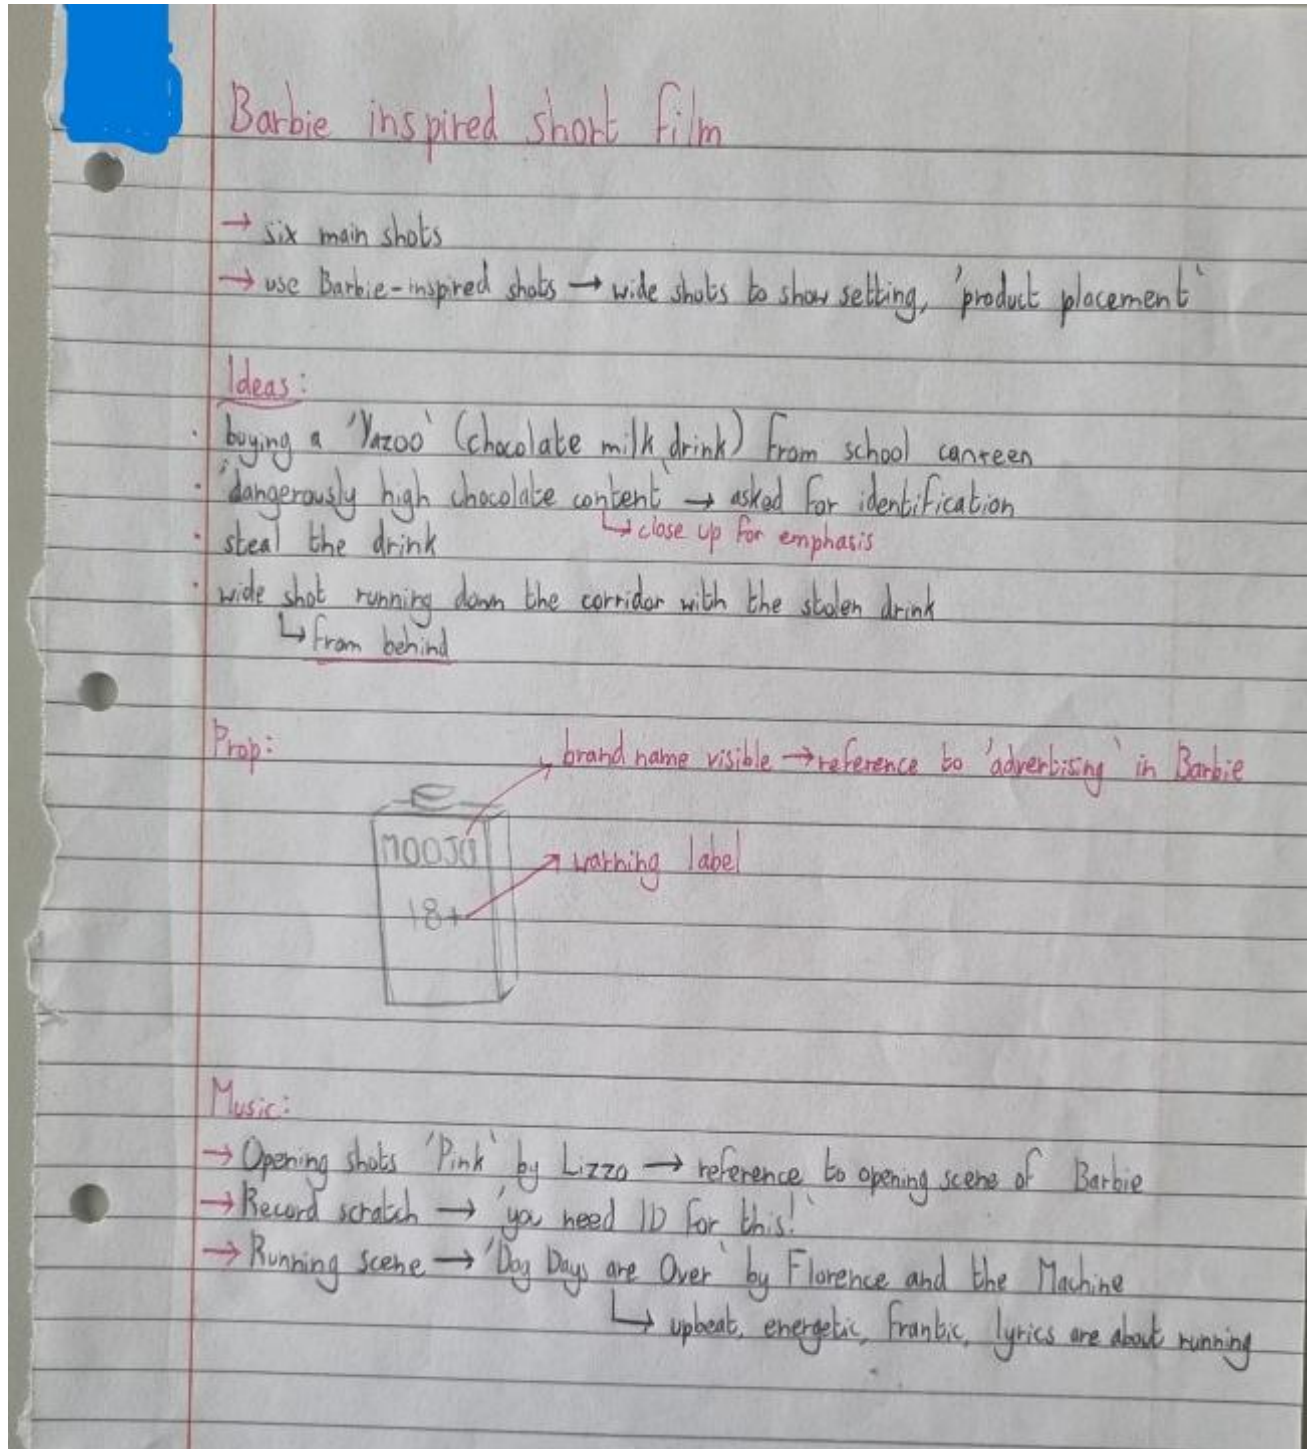 Barbie inspired short film
→ six main shots
→ use Barbie-inspired shots → wide shots to show setting, 'product placement'
Ideas:
· buying a 'Yazoo' (chocolate milk drink) from school canteen
· 'dangerously high chocolate content' → asked for identification
↳ close up for emphasis
· steal the drink
· wide shot running down the corridor with the stolen drink
↳ from behind
Prop:
brand name visible → reference to 'advertising' in Barbie
MOOJU
18+
warning label
Music:
→ Opening shots 'Pink' by Lizzo → reference to opening scene of Barbie
→ Record scratch → 'you need ID for this!'
→ Running scene → 'Dog Days are Over' by Florence and the Machine
↳ upbeat, energetic, frantic, lyrics are about running